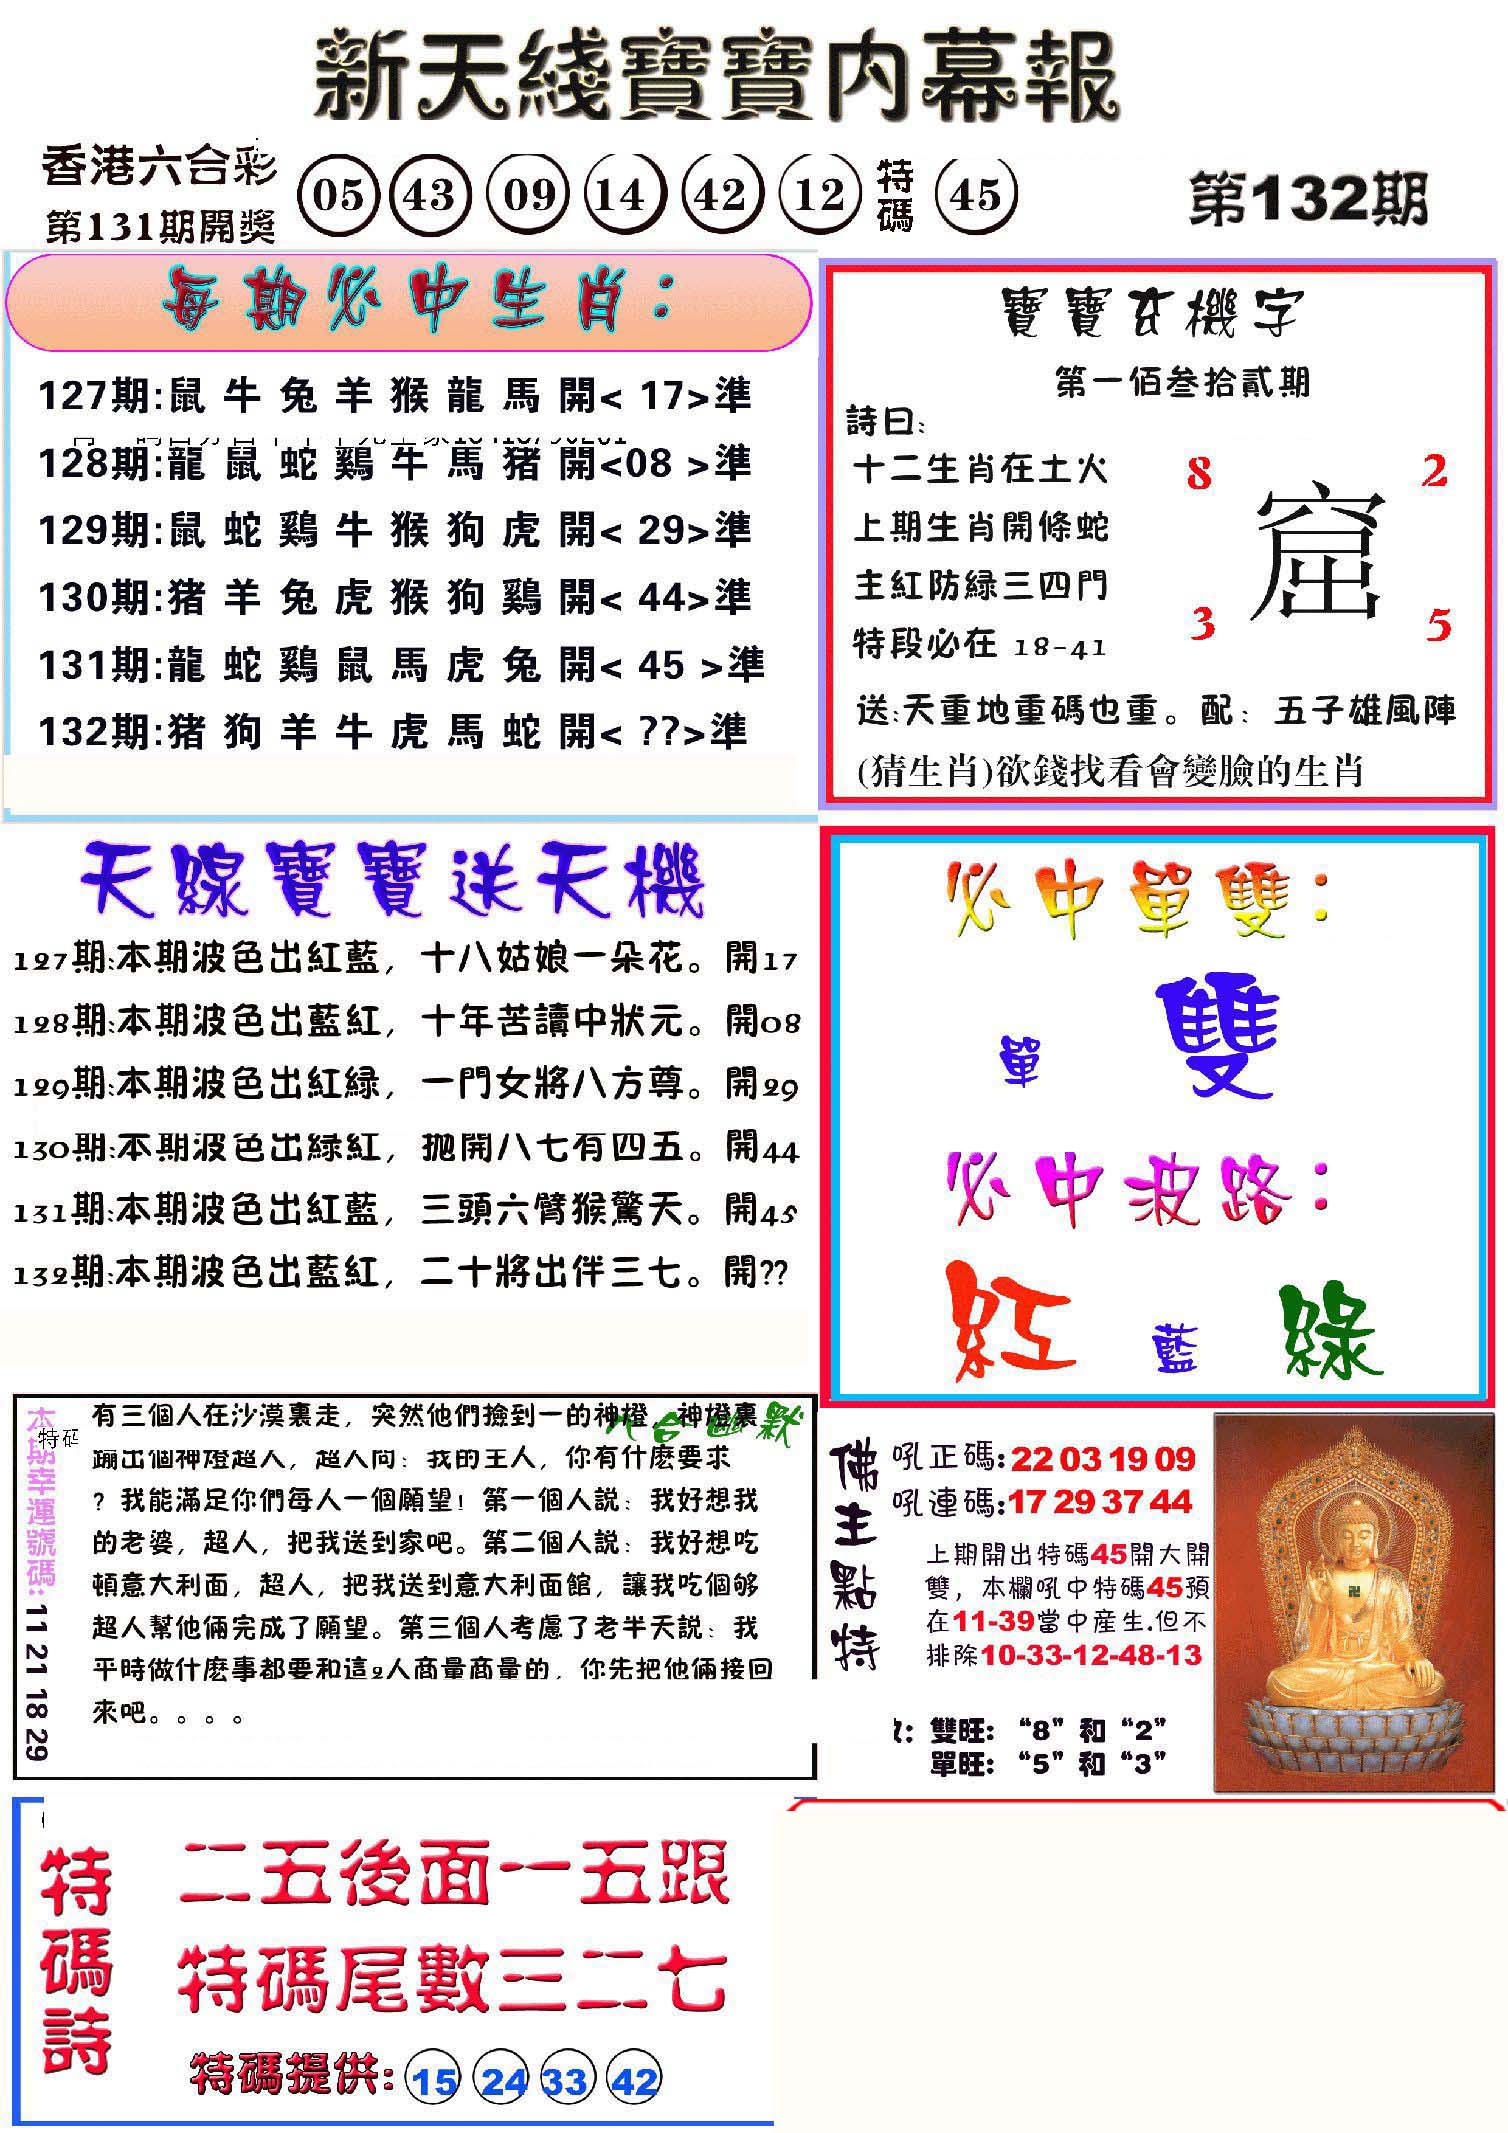 新天綫寶寶内幕報
香港六合彩
第131期開獎
05 43 09 14 42 12 特碼 45
第132期
每期必中生肖：
127期:鼠 牛 兔 羊 猴 龍 馬 開< 17>準
128期:龍 鼠 蛇 鷄 牛 馬 猪 開<08 >準
129期:鼠 蛇 鷄 牛 猴 狗 虎 開< 29>準
130期:猪 羊 兔 虎 猴 狗 鷄 開< 44>準
131期:龍 蛇 鷄 鼠 馬 虎 兔 開< 45 >準
132期:猪 狗 羊 牛 虎 馬 蛇 開< ??>準
寶寶玄機字
第一佰叁拾貳期
詩曰:
十二生肖在土火
上期生肖開條蛇
主紅防緑三四門
特段必在 18-41
8 2
窟
3 5
送:天重地重碼也重。配：五子雄風陣
(猜生肖)欲錢找看會變臉的生肖
天線寶寶送天機
127期:本期波色出紅藍，十八姑娘一朵花。開17
128期:本期波色出藍紅，十年苦讀中狀元。開08
129期:本期波色出紅緑，一門女將八方尊。開29
130期:本期波色出緑紅，抛開八七有四五。開44
131期:本期波色出紅藍，三頭六臂猴驚天。開45
132期:本期波色出藍紅，二十將出伴三七。開??
必中單雙：
單 雙
必中波路：
紅 藍 綠
本期幸運號碼: 11 21 18 29
特码
有三個人在沙漠裏走，突然他們撿到一的神燈，神燈裏
蹦出個神燈超人，超人問：我的主人，你有什麽要求
？我能滿足你們每人一個願望！第一個人説：我好想我
的老婆，超人，把我送到家吧。第二個人説：我好想吃
頓意大利面，超人，把我送到意大利面館，讓我吃個够
超人幫他倆完成了願望。第三個人考慮了老半天説：我
平時做什麽事都要和這2人商量商量的，你先把他倆接回
來吧。。。。
佛主點特
吼正碼:22 03 19 09
吼連碼:17 29 37 44
上期開出特碼45開大開
雙，本欄吼中特碼45預
在11-39當中産生.但不
排除10-33-12-48-13
: 雙旺: “8”和“2”
單旺: “5”和“3”
特碼詩
二五後面一五跟
特碼尾數三二七
特碼提供: 15 24 33 42